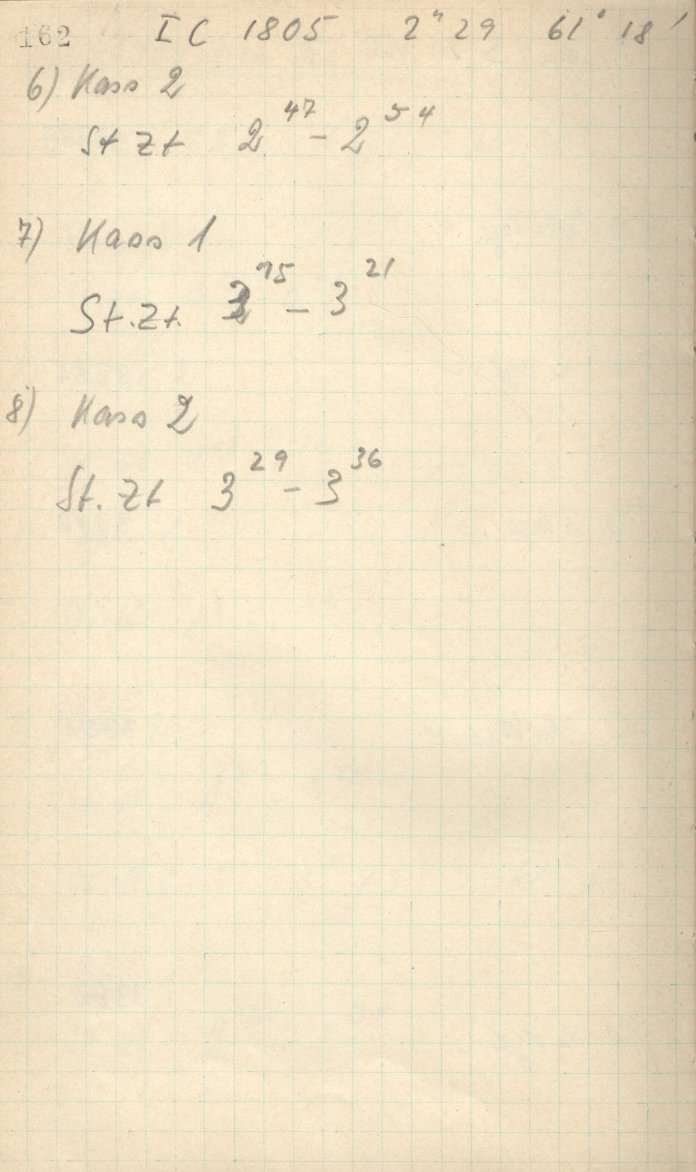 162 IC 1805 2ʰ 29 61° 18'
6) Kass 2
St Zt 2⁴⁷ - 2⁵⁴
7) Kass 1
St. Zt. 3¹⁵ - 3²¹
8) Kass 2
St. Zt 3²⁹ - 3³⁶